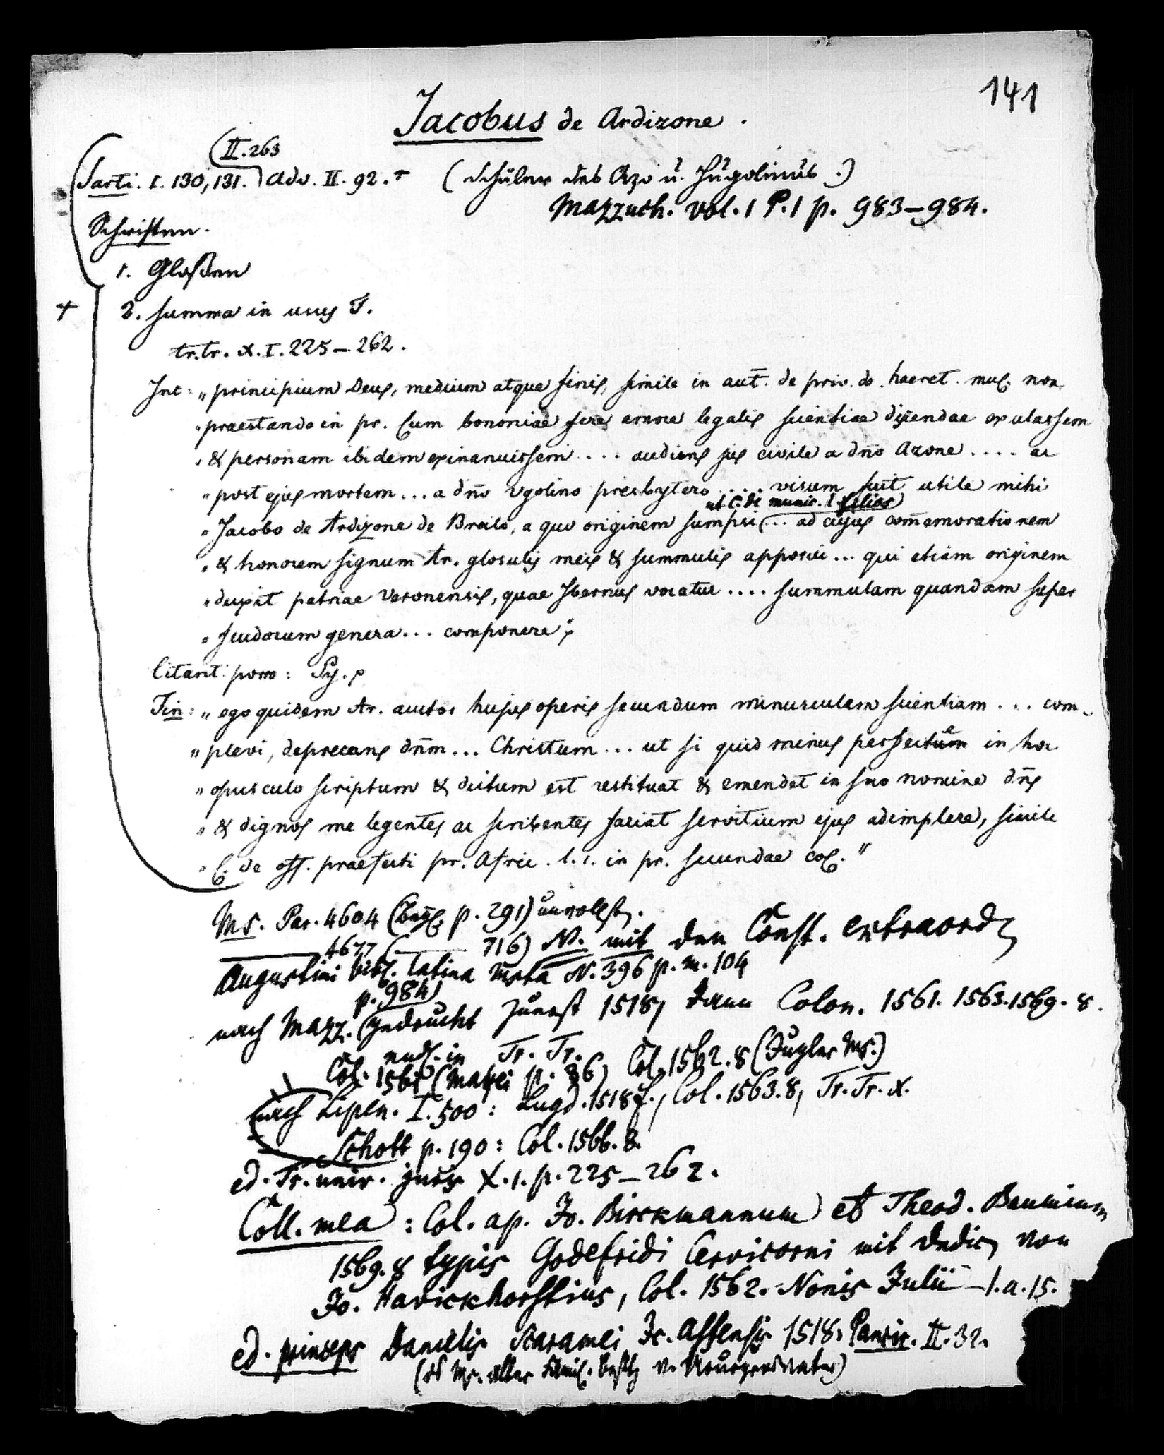 141
Jacobus de Ardizone.
II. 263
Sarti. I. 130, 131. adv. II. 92. + (Schüler des Azo u. Hugolinus.)
Mazzuch. vol. 1 P. 1 p. 983–984.
Schriften.
1. Glossen
+ 2. Summa in usus F.
tr. tr. X. I. 225–262.
Int: „principium Deus, medium atque finis, simile in aut. de priv. do. haeret. mul. non
„praestando in pr. Cum bononiae fere errore legalis scientiae discendae exulassem
„& personam ibidem exinanuissem .... audiens jus civile a dño Azone .... ac
„post ejus mortem ... a dño Ugolino presbytero .... visum fuit utile mihi
ut C. de munic. l. filios
„Jacobo de Ardizone de Broilo, a quo originem sumpsi (... ad cujus com̄emorationem
„& honorem signum Ar. glosulis meis & summulis apposui ... qui etiam originem
„duxit patriae Veronensis, quae Ibernus vocatur .... summulam quandam super
„feudorum genera ... componere;
Citant: pom: Py. p
Fin: „ego quidem Ar. auctor hujus operis secundum minusculam scientiam ... com-
„plevi, deprecans dñm ... Christum ... ut si quid minus perfectum in hoc
„opusculo scriptum & dictum est restituat & emendet in suo nomine dñs
„& dignos me legentes ac scribentes faciat servitium ejus adimplere, simile
„C. de off. praefecti pr. Afric. l. 1. in pr. secundae col."
Ms. Par. 4604 (p. 291) unvollst.
4677 ( 716) N. mit den Const. extraord.
Augustini bibl. latina Msta N. 396 p. m. 104
p. 984)
nach Mazz. (gedruckt zuerst 1518, dann Colon. 1561. 1563. 1569. 8.
endl. in Tr. Tr.
Col. 1561 (p. 86, Col. 1562. 8 (Jugler Ms.)
nach Lipen. I. 500: Lugd. 1518 f., Col. 1563. 8, Tr. Tr. X.
Schott p. 190: Col. 1566. 8.
ed. Tr. univ. juris X. 1. p. 225–262.
Coll. mea: Col. ap. Jo. Birckmannum et Theod. Baumium
1569. 8 typis Godefridi Cervicorni mit Dedic. von
Jo. Havickhorstius, Col. 1562. Nonis Julii – l. a. 15.
ed. princeps Danielis Jc. Astensis 1518. Panzir. II. 32.